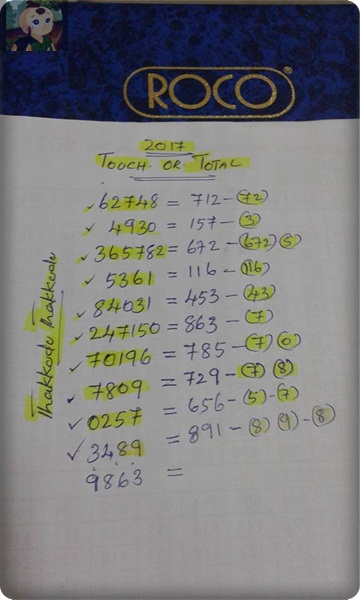 ROCO®
2017
TOUCH OR TOTAL
✓ 62748 = 712 - 72
✓ 4930 = 157 - 3
✓ 365782 = 672 - 672 5
✓ 5361 = 116 - 116
✓ 84031 = 453 - 43
✓ 247150 = 863 - 7
✓ 70196 = 785 - 7 0
✓ 7809 = 729 - 7 8
✓ 0257 = 656 - 5 - 7
✓ 3489 = 891 - 8 9 - 8
9863 =
Thakkodu Thakkodu